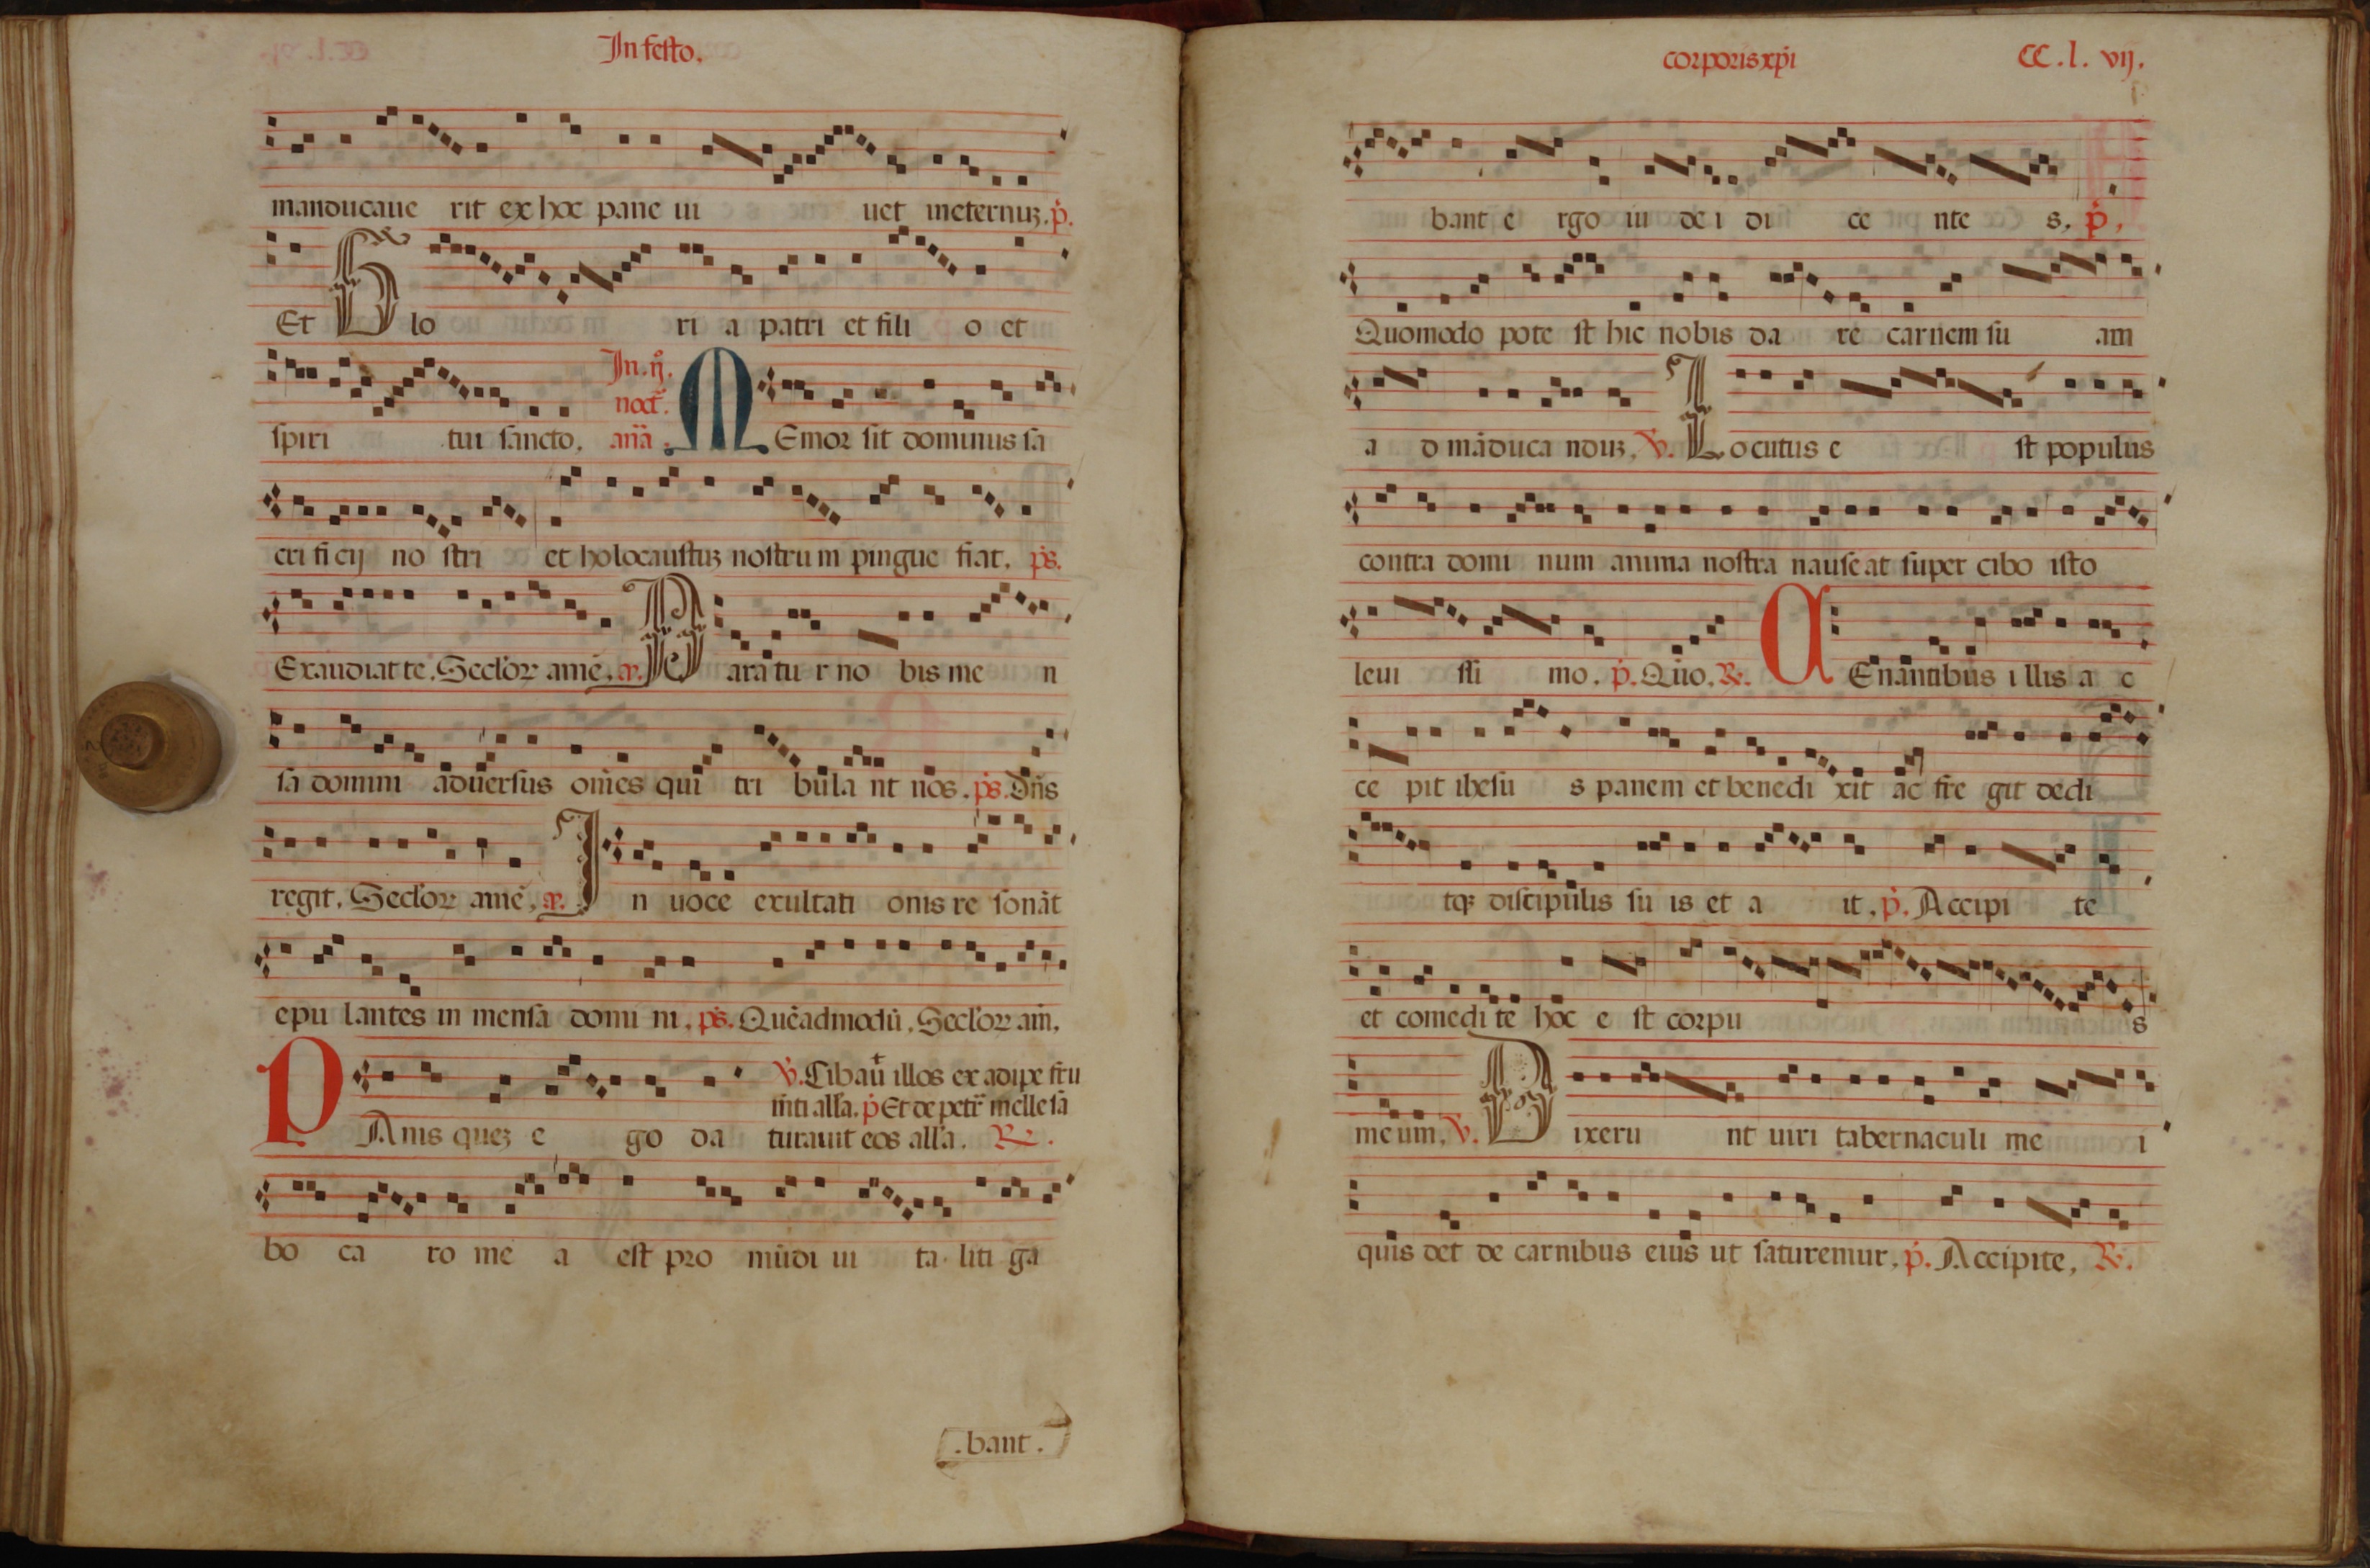 In festo.
manducaue rit ex hoc pane ui uet ineternuꝫ. p̄.
Et Glo ri a patri et fili o et
spiri tui sancto. In .ij. noct̄. an̄a Memor sit dominus sa
cri fi cij no stri et holocaustuꝫ nostru m pingue fiat. ps̄.
Exaudiat te. Seclorꝝ amē. Paratu r no bis me n
sa domini aduersus om̄es qui tri bula nt nos. ps̄. Dn̄s
regit. Seclorꝝ amē. In uoce exultati onis re sonāt
epu lantes in mensa domi ni. ps̄. Quēadmodū. Seclorꝝ am̄.
℣. Cibauit illos ex adipe fru
m̄ti alla. p̄ Et de petr̄ melle sa
Panis queꝫ e go da turauit eos alla. ℟.
bo ca ro me a est pro mūdi ui ta liti ga
.bant.
corporis xp̄i CC.l.vij.
bant e rgo iu de i di ce nte s. p̄.
Quomodo pote st hic nobis da re carnem su am
a d māduca nduꝫ. ℣. Locutus e st populus
contra domi num anima nostra nauseat super cibo isto
leui ssi mo. p̄. Quo. ℟. Cenantibus i llis a c
ce pit ihesu s panem et benedi xit ac fre git dedi
tqꝫ discipulis su is et a it. p̄. Accipi te
et comedi te hoc e st corpu s
meum. ℣. Dixeru nt uiri tabernaculi me i
quis det de carnibus eius ut saturemur. p̄. Accipite. ℟.